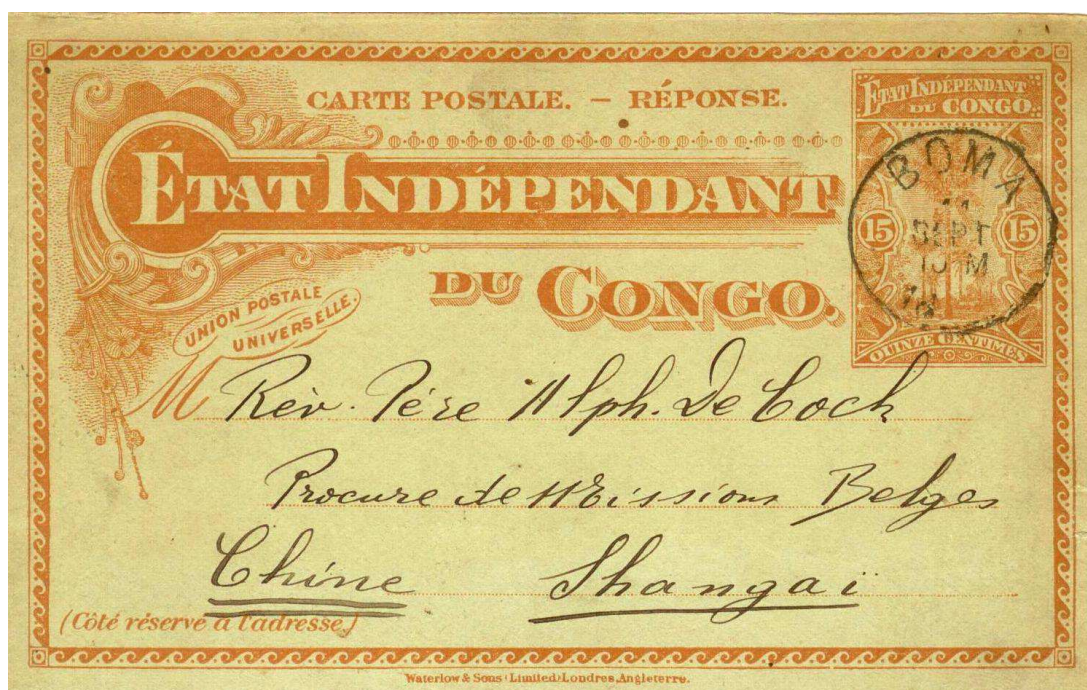 CARTE POSTALE. — RÉPONSE.
ÉTAT INDÉPENDANT
DU CONGO.
UNION POSTALE
UNIVERSELLE.
ÉTAT INDÉPENDANT
DU CONGO.
15 15
QUINZE CENTIMES
BOMA
11
SEPT
M
M Rév. Père Alph. De Cock
Procure de Missions Belges
Chine Shangaï
(Côté réservé à l'adresse.)
Waterlow & Sons Limited, Londres, Angleterre.